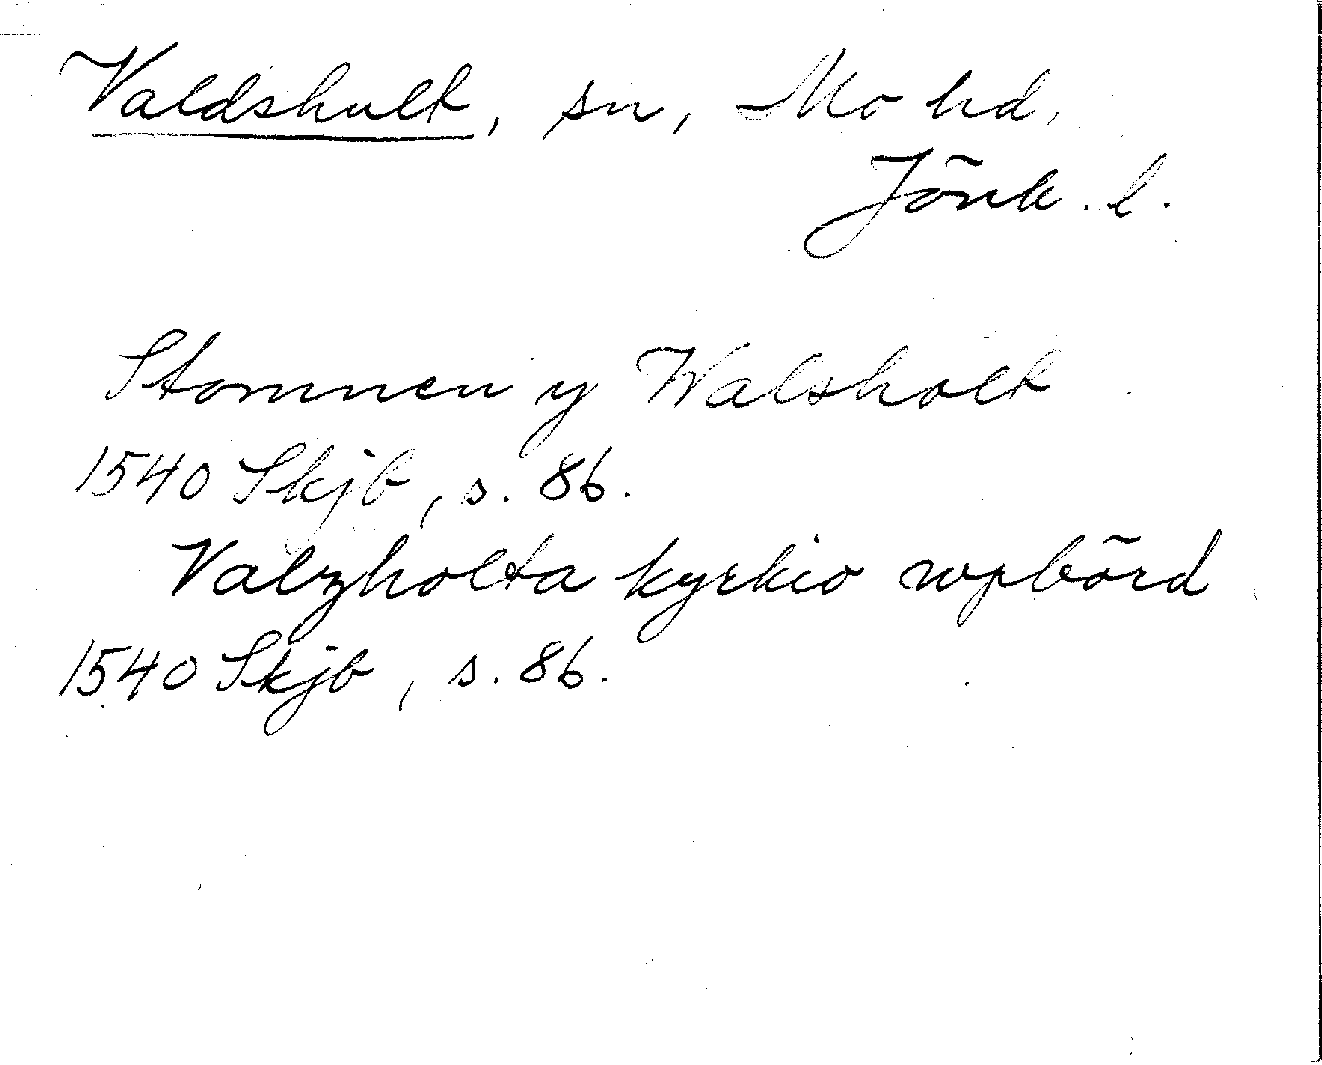 Valdshult, sn, Mo hd,
Jönk. l.
Stommen y Walsholt
1540 Skjb, s. 86.
Valzholta kyrkio wpbörd
1540 Skjb, s. 86.